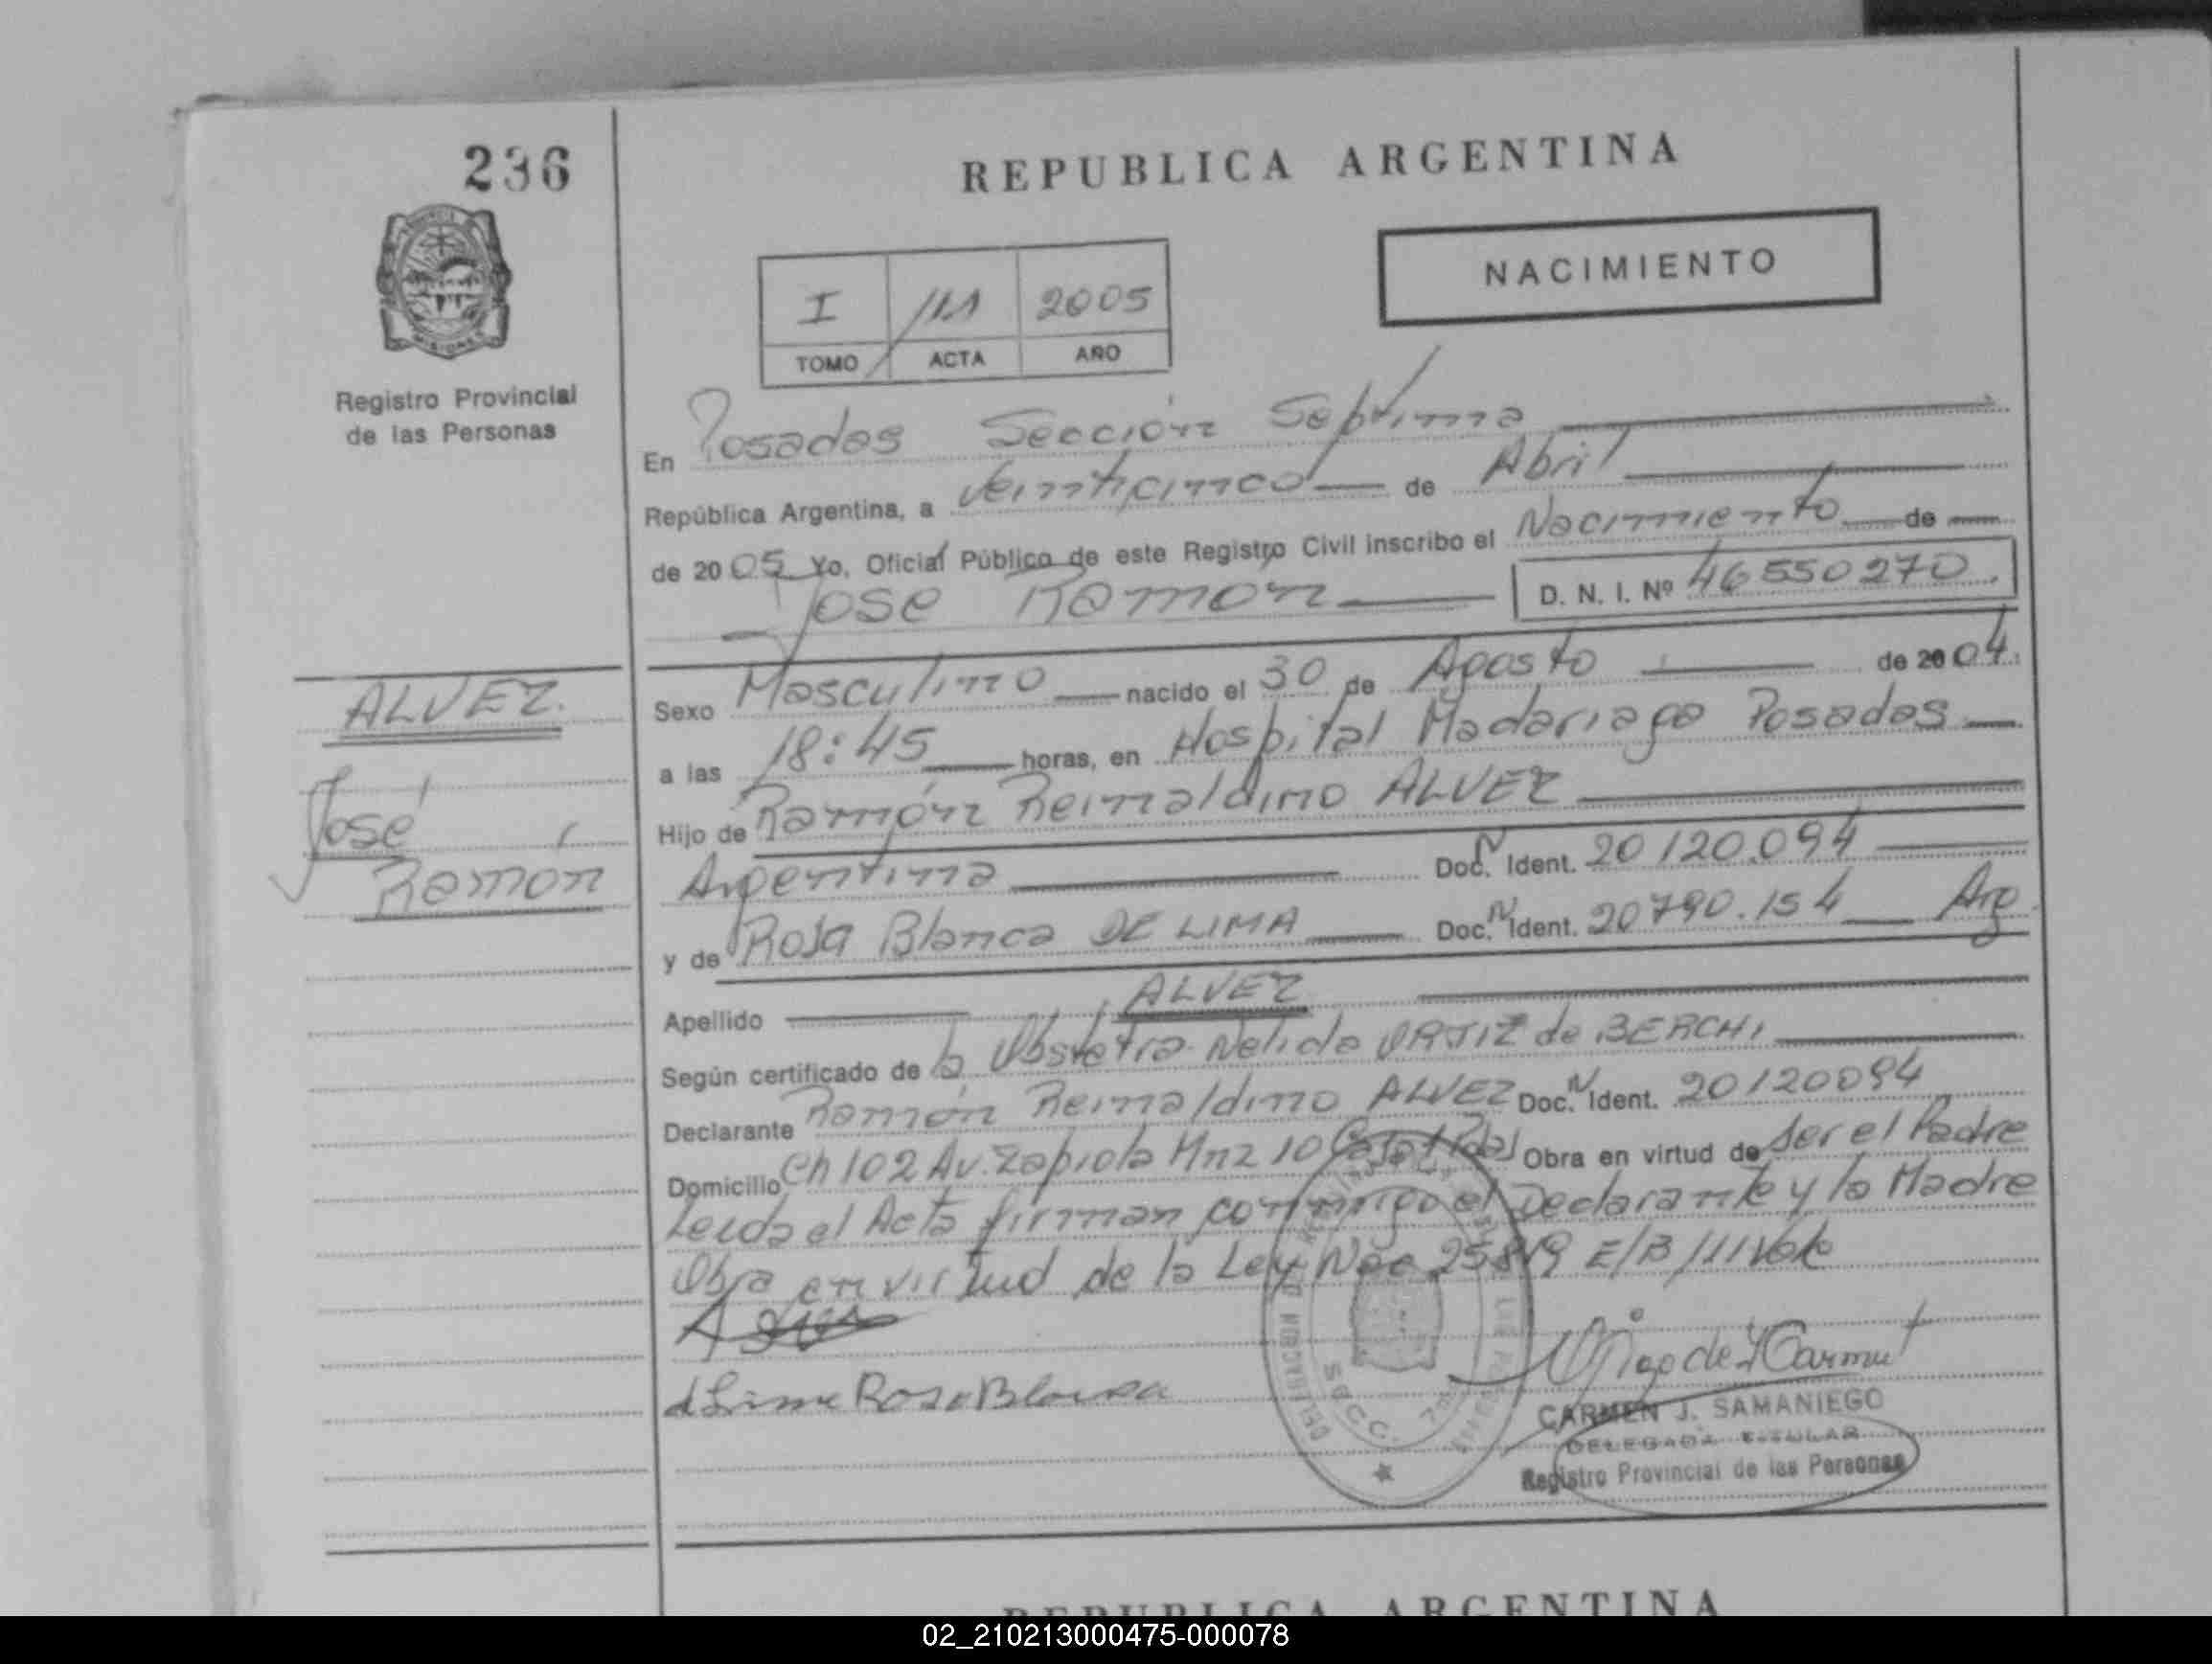 236
REPUBLICA ARGENTINA
NACIMIENTO
I 111 2005
TOMO ACTA AÑO
Registro Provincial
de las Personas
En Posadas Sección Septima
República Argentina, a veinticinco de Abril
de 2005 Yo, Oficial Público de este Registro Civil inscribo el Nacimiento de
José Ramón D. N. I. Nº 46550270
ALVEZ.
José
Ramón
Sexo Masculino nacido el 30 de Agosto de 2004.
a las 18:45 horas, en Hospital Madariaga Posadas
Hijo de Ramón Reinaldino ALVEZ
Argentina Doc. N Ident. 20120.094
y de Rosa Blanca DE LIMA Doc. N Ident. 20790.154 Arg
Apellido ALVEZ
Según certificado de la Obstetra Nelida ORTIZ de BERCHI
Declarante Ramón Reinaldino ALVEZ Doc. N Ident. 20120094
Domicilio Ch 102 Av. Zapiola Mnz 10 Obra en virtud de ser el Padre
Leida el Acta firman conmigo el Declarante y la Madre
Obra en virtud de la Ley Nac 25819 E/B/111 Vale
d Lima Rosa Blanca
SECC. 7ma
CARMEN J. SAMANIEGO
DELEGADA TITULAR
Registro Provincial de las Personas
REPUBLICA ARGENTINA
02_210213000475-000078